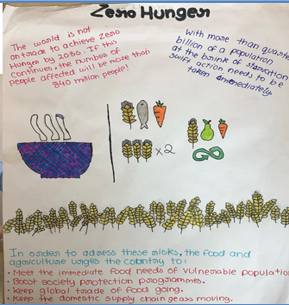 Zero Hunger
The world is not
ontrack to achieve Zero
Hunger by 2030. If this
continues, the number of
people affected will be more than
840 million people!
With more than quarter
billion of a population
at the brink of starvation
swift action needs to be
taken immediately
x2
In order to address these risks, the food and
agriculture urges the country to:
• Meet the immediate food needs of vulnerable population
• Boost society protection programmes.
• Keep global trade of food going.
• Keep the domestic supply chain gears moving.